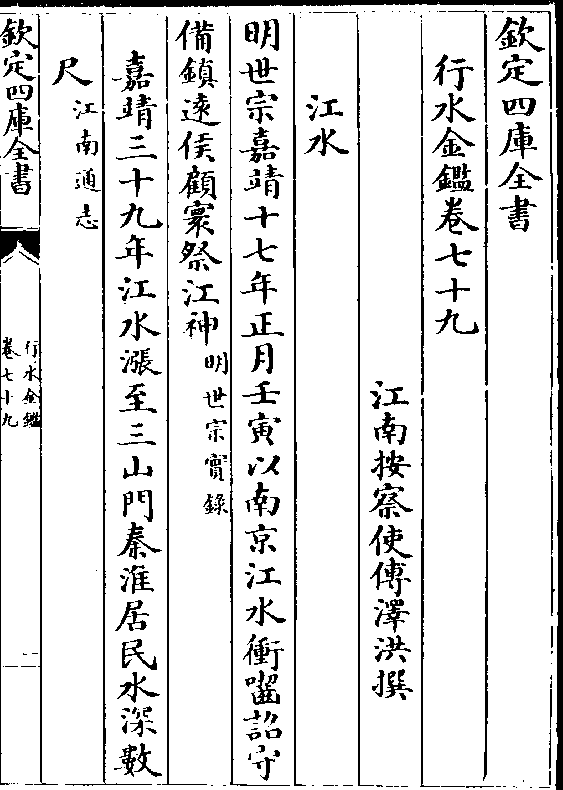 欽定四庫全書
行水金鑑卷七十九
江南按察使傅澤洪撰
江水
明世宗嘉靖十七年正月壬寅以南京江水衝齧詔守
備鎮遠侯顧寰祭江神明世宗實錄
嘉靖三十九年江水漲至三山門秦淮居民水深數
尺江南通志
欽定四庫全書
行水金鑑
卷七十九
一